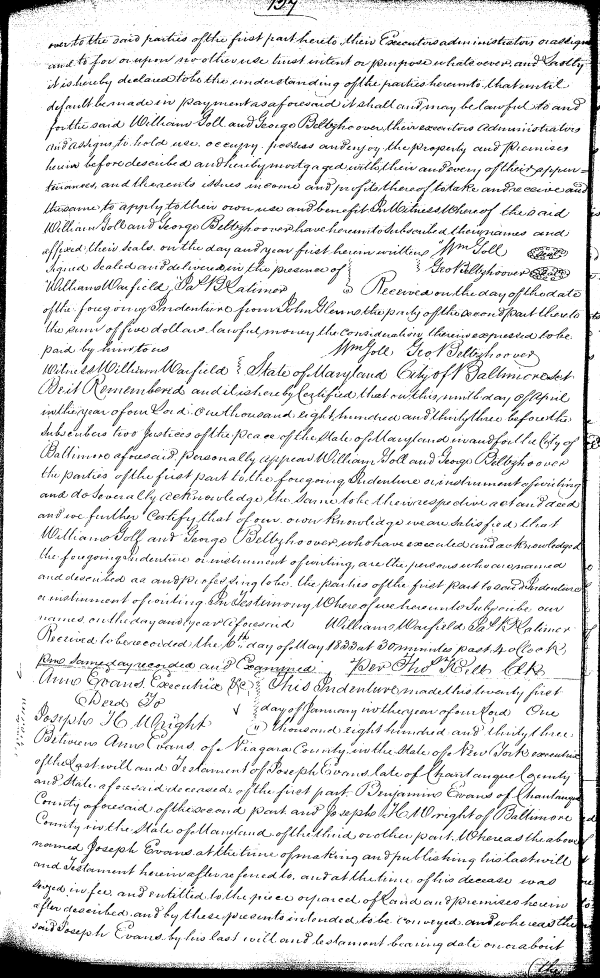 157
over to the said parties of the first part hereto their Executors administrators or assigns
and to for or upon no other use trust intent or purpose whatever, and Lastly
it is hereby declared to be the understanding of the parties hereunto, that until
default be made in payment as aforesaid it shall and may be lawful to and
for the said William Goll and George Beltzhoover their executors administrators
and assigns, to hold use occupy possess and enjoy the property and premises
herein before described and hereby mortgaged with their and every of their appur=
tenances, and the rents issues income and profits thereof to take and receive and
the same to apply to their own use and benefit In Witness Whereof the said
William Goll and George Beltzhoover have hereunto Subscribed their names and
affixed their seals on the day and year first herein written Wm Goll Seal
Signed Sealed and delivered in the presence of Geo Beltzhoover Seal
William Warfield, Jas B Latimer Received on the day of the date
of the foregoing Indenture from John Glenn the party of the second part thereto
the sum of five dollars lawful money the consideration therein expressed to be
paid by him to us Wm Goll Geo Beltzhoover
Witness William Warfield State of Maryland City of Baltimore Sct
Be it Remembered and it is hereby Certified that on this ninth day of April
in the year of our Lord one thousand eight hundred and thirty three before the
Subscribers two Justices of the peace of the State of Maryland in and for the City of
Baltimore aforesaid personally appear William Goll and George Beltzhoover
the parties of the first part to the foregoing Indenture or instrument of writing
and do severally acknowledge the same to be their respective act and deed
and we further Certify that of our own knowledge we are satisfied that
William Goll and George Beltzhoover who have executed and acknowledged
the foregoing Indenture or instrument of writing, are the persons who are named
and described as and professing to be the parties of the first part to said Indenture
or instrument of writing In Testimony Whereof we hereunto Subscribe our
names on the day and year aforesaid William Warfield Jas B Latimer
Received to be recorded the 6th day of May 1833 at 30 minutes past 4 o Clock
pm Same day recorded and Examined Per Thos Kell Clk
Ann Evans Executrix &c This Indenture made this twenty first
Deed To day of January in the year of our Lord One
Joseph H Wright thousand eight hundred and thirty three
Between Ann Evans of Niagara County in the State of New York executrix
of the Last will and Testament of Joseph Evans late of Chautauque County
and State aforesaid deceased of the first part, Benjamin Evans of Chautauque
County aforesaid of the second part and Joseph H Wright of Baltimore
County in the State of Maryland of the third or other part, Whereas the above
named Joseph Evans at the time of making and publishing his last will
and Testament herein after referred to, and at the time of his decease was
seized in fee and entitled to the piece or parcel of Land and premises herein
after described and by these presents intended to be conveyed and whereas the
said Joseph Evans by his last will and testament bearing date on or about